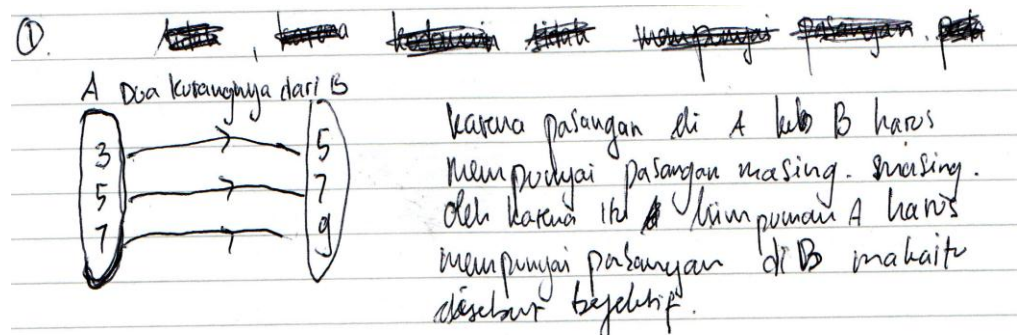 ①.
A Dua kurangnya dari B
3 5
5 7
7 9
karena pasangan di A ke B harus
mempunyai pasangan masing-masing.
oleh karena itu himpunan A harus
mempunyai pasangan di B maka itu
disebut bejektif.